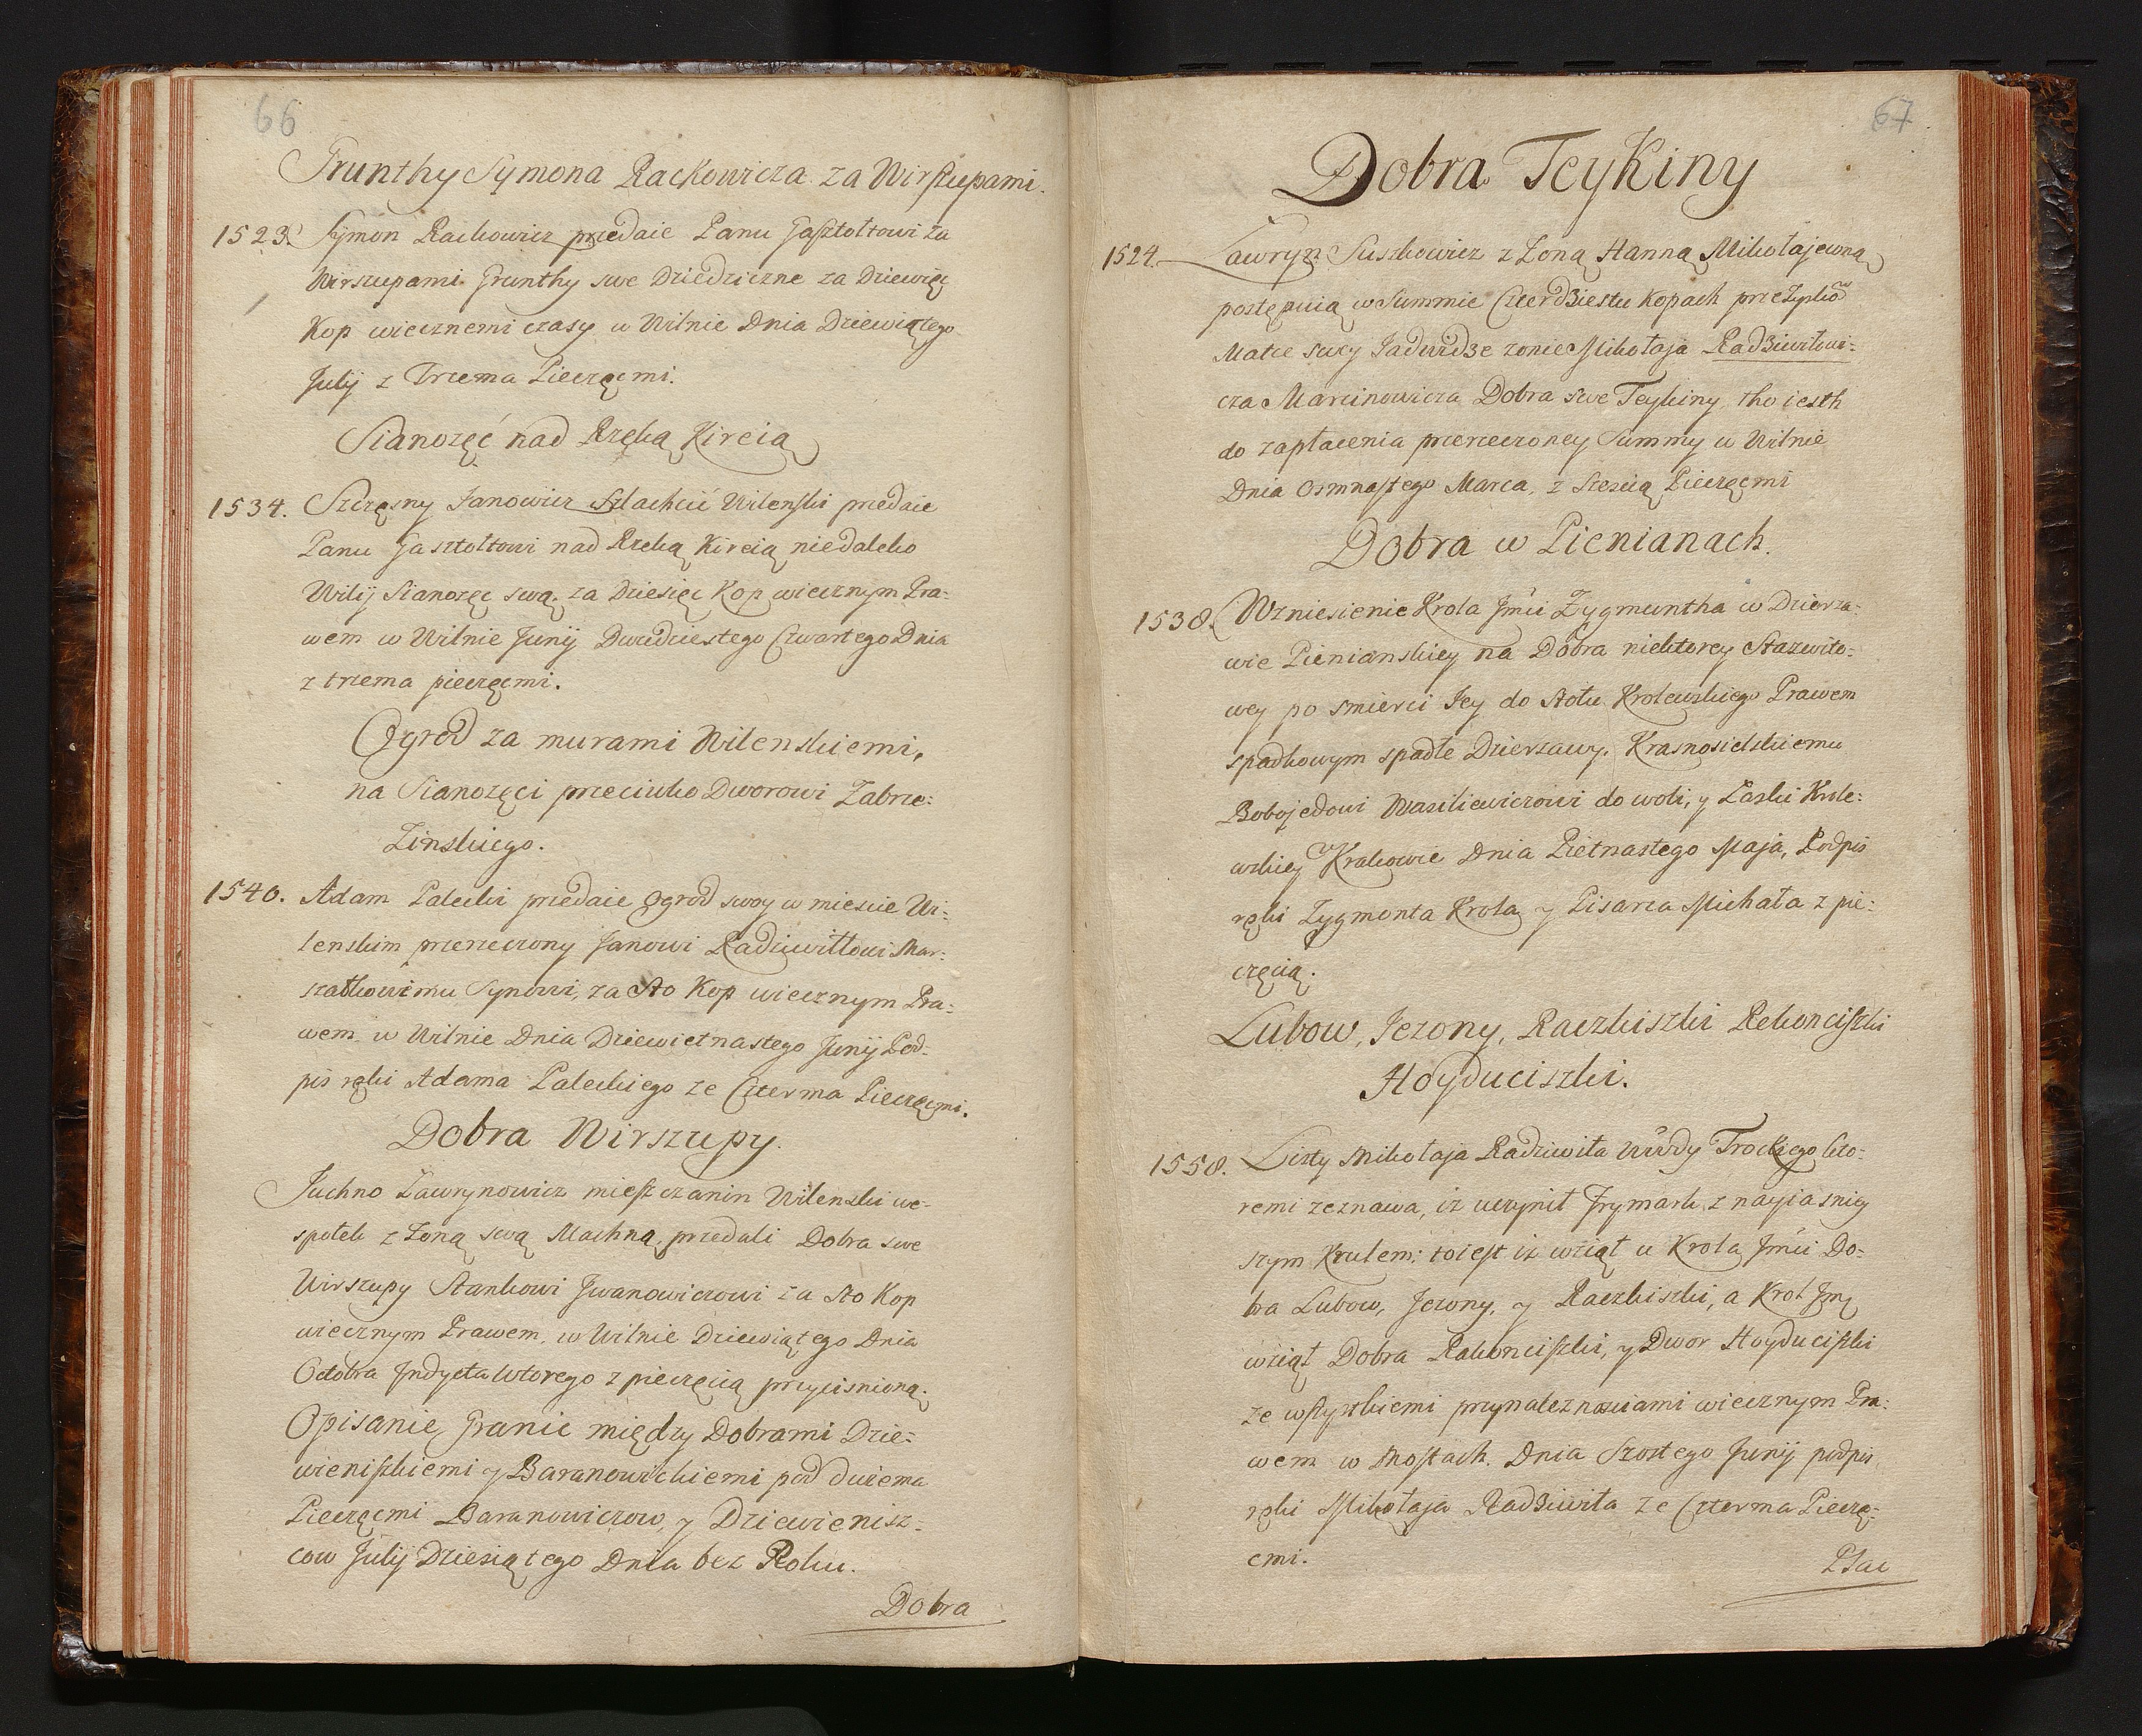 66
Grunthy Symona Rackowicza za Wirszupami.
1523. Symon Rackowicz przedaie Panu Gasztoltowi za
Wirszupami Grunthy swe Dziedziczne za Dziewięc
Kop wiecznemi czasy w Wilnie Dnia Dziewiątego
Julij z Trzema Pieczęcmi.
Sianozęć nad Rzeką Kircią
1534. Szczęsny Janowicz Szlachcić Wilenski przedaie
Panu Gasztoltowi nad Rzeką Kircią niedaleko
Wilij Sianozęc swą za Dziesięc Kop wiecznym Pra-
wem w Wilnie Junij Dwudziestego Czwartego Dnia
z trzema pieczęcmi.
Ogrod za murami Wilenskiemi,
na Sianozęci przeciwko Dworowi Zabrze-
Zinskiego.
1540. Adam Palecki przedaie Ogrod swoy w miescie Wi-
lenskim przerzeczony Janowi Radziwiłłowi Mar-
szałkowemu Synowi, za Sto Kop wiecznym Pra-
wem w Wilnie Dnia Dziewietnastego Junij Pod-
pis ręki Adama Paleckiego ze Czterma Pieczęcmi.
Dobra Wirszupy.
Juchno Ławrynowicz mieszczanin Wilenski we-
społek z Zoną swą Machną, przedali Dobra swe
Wirszupy Stankowi Jwanowiczowi za Sto Kop
wiecznym Prawem, w Wilnie Dziewiątego Dnia
Octobra Jndycta wtorego z pieczęcią przycisnioną.
Opisanie Granic między Dobrami Dzie-
wieniszkiemi y Baranowickiemi pod dwiema
Pieczęcmi Baranowiczow, y Dziewienisz-
cow Julij Dziesiątego Dnia bez Roku.
Dobra
67
Dobra Teykiny
1524. Ławryn Suszkowicz z Zoną Hanną Mikołajewną
postępuią w Summie Czterdziestu Kopach
Matce swey Jadwidze zonie Mikołaja Radziwiłowi-
cza Marcinowicza Dobra swe Teykiny, tho iesth
do zapłacenia przerzeczoney Summy w Wilnie
Dnia Osmnastego Marca, z Szescią Pieczęcmi
Dobra w Pienianach.
1538. Wzniesienie Krola Jmći Zygmuntha w Dzierza-
wie Pienianskiey na Dobra niektorey Stazewito-
wey po smierci Jey do Stołu Krolewskiego Prawem
spadkowym spadłe Dzierzawy. Krasnosielskiemu
Bobojedowi Wasiliewiczowi do woli, y Łaski Krole-
wskiey w Krakowie Dnia Pietnastego Maja, Podpis
ręki Zygmonta Krola y Pisarza Michała z pie-
częcią.
Lubow, Jezony, Raczkiszki Rekonciszki
Hoyduciszki.
1558. Listy Mikołaja Radziwiła Wwdy Trockiego kto-
remi zeznawa, iz uczynił Frymark z nayiasniey
szym Krulem; toiest iz wziął u Krola Jmći Do-
bra Lubow, Jezony, y Raczkiszki, a Krol Jmć
wziął Dobra Rakonciszki, y Dwor Hoyduciszki
ze wszystkiemi przynaleznosciami wiecznym Pra-
wem w Mostach. Dnia Szostego Junij podpis
ręki Mikołaja Radziwiła ze Czterma Pieczę-
cmi.
Plac